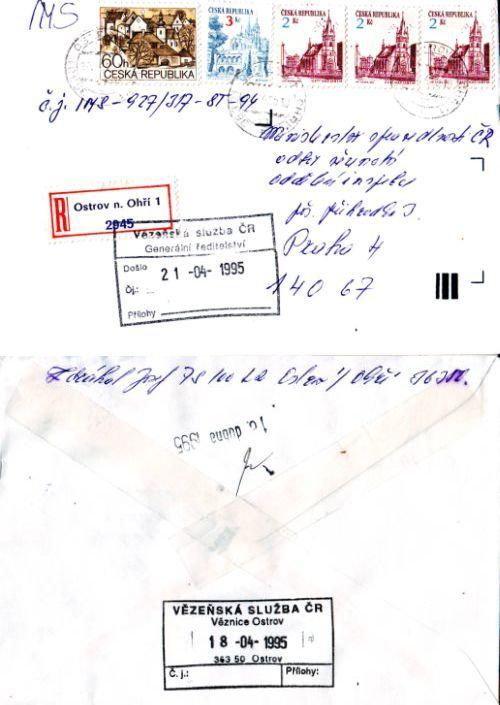 MS
60h
ČESKÁ REPUBLIKA
ČESKÁ REPUBLIKA
3 Kč
ČESKÁ REPUBLIKA
2 Kč
ČESKÁ REPUBLIKA
2 Kč
ČESKÁ REPUBLIKA
2 Kč
č.j. IMS-927/JA-ST-94
Ministerstvo spravedlnosti ČR
odbor
oddělení
Praha 4
140 67
R Ostrov n. Ohří 1
2945
Vězeňská služba ČR
Generální ředitelství
Došlo 21 -04- 1995
Čj.:
Přílohy
Josef
10. dubna 1995
VĚZEŇSKÁ SLUŽBA ČR
Věznice Ostrov
18 -04- 1995
363 50 Ostrov
Č. j.: Přílohy: